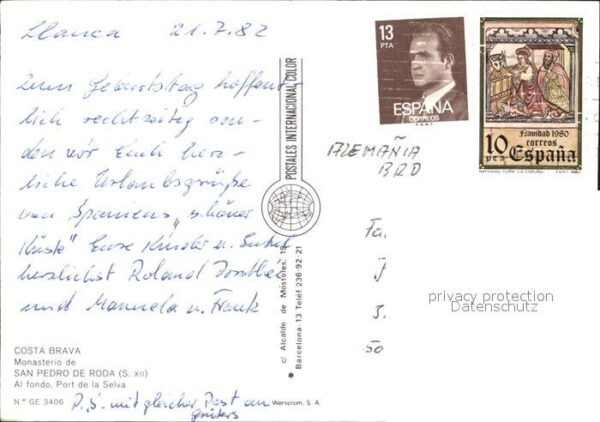 Llanca 21.7.82
Zum Geburtstag hoffent-
lich rechtzeitig sen-
den wir Euch herz-
liche Urlaubsgrüße
von Spaniens „schöner
Küste" Eure Kinder u. Enkel
herzlichst Roland Dorothee
und Manuela u. Frank
COSTA BRAVA
Monasterio de
SAN PEDRO DE RODA (S. XII)
Al fondo, Port de la Selva
N.º GE 3406
P.S. mit gleicher Post an
Werncrom, S A
POSTALES INTERNACIONAL COLOR
c/ Alcalde de Móstoles, 19
Barcelona-13 Teléf. 236-92-21
13
PTA
ESPAÑA
CORREOS
Navidad 1980
correos
10 pta España
NATIVIDAD CUIÑA (LA CORUÑA) F.N.M.T. 1980
ALEMAÑIA
BRD
Fa.
J
3.
50
privacy protection
Datenschutz